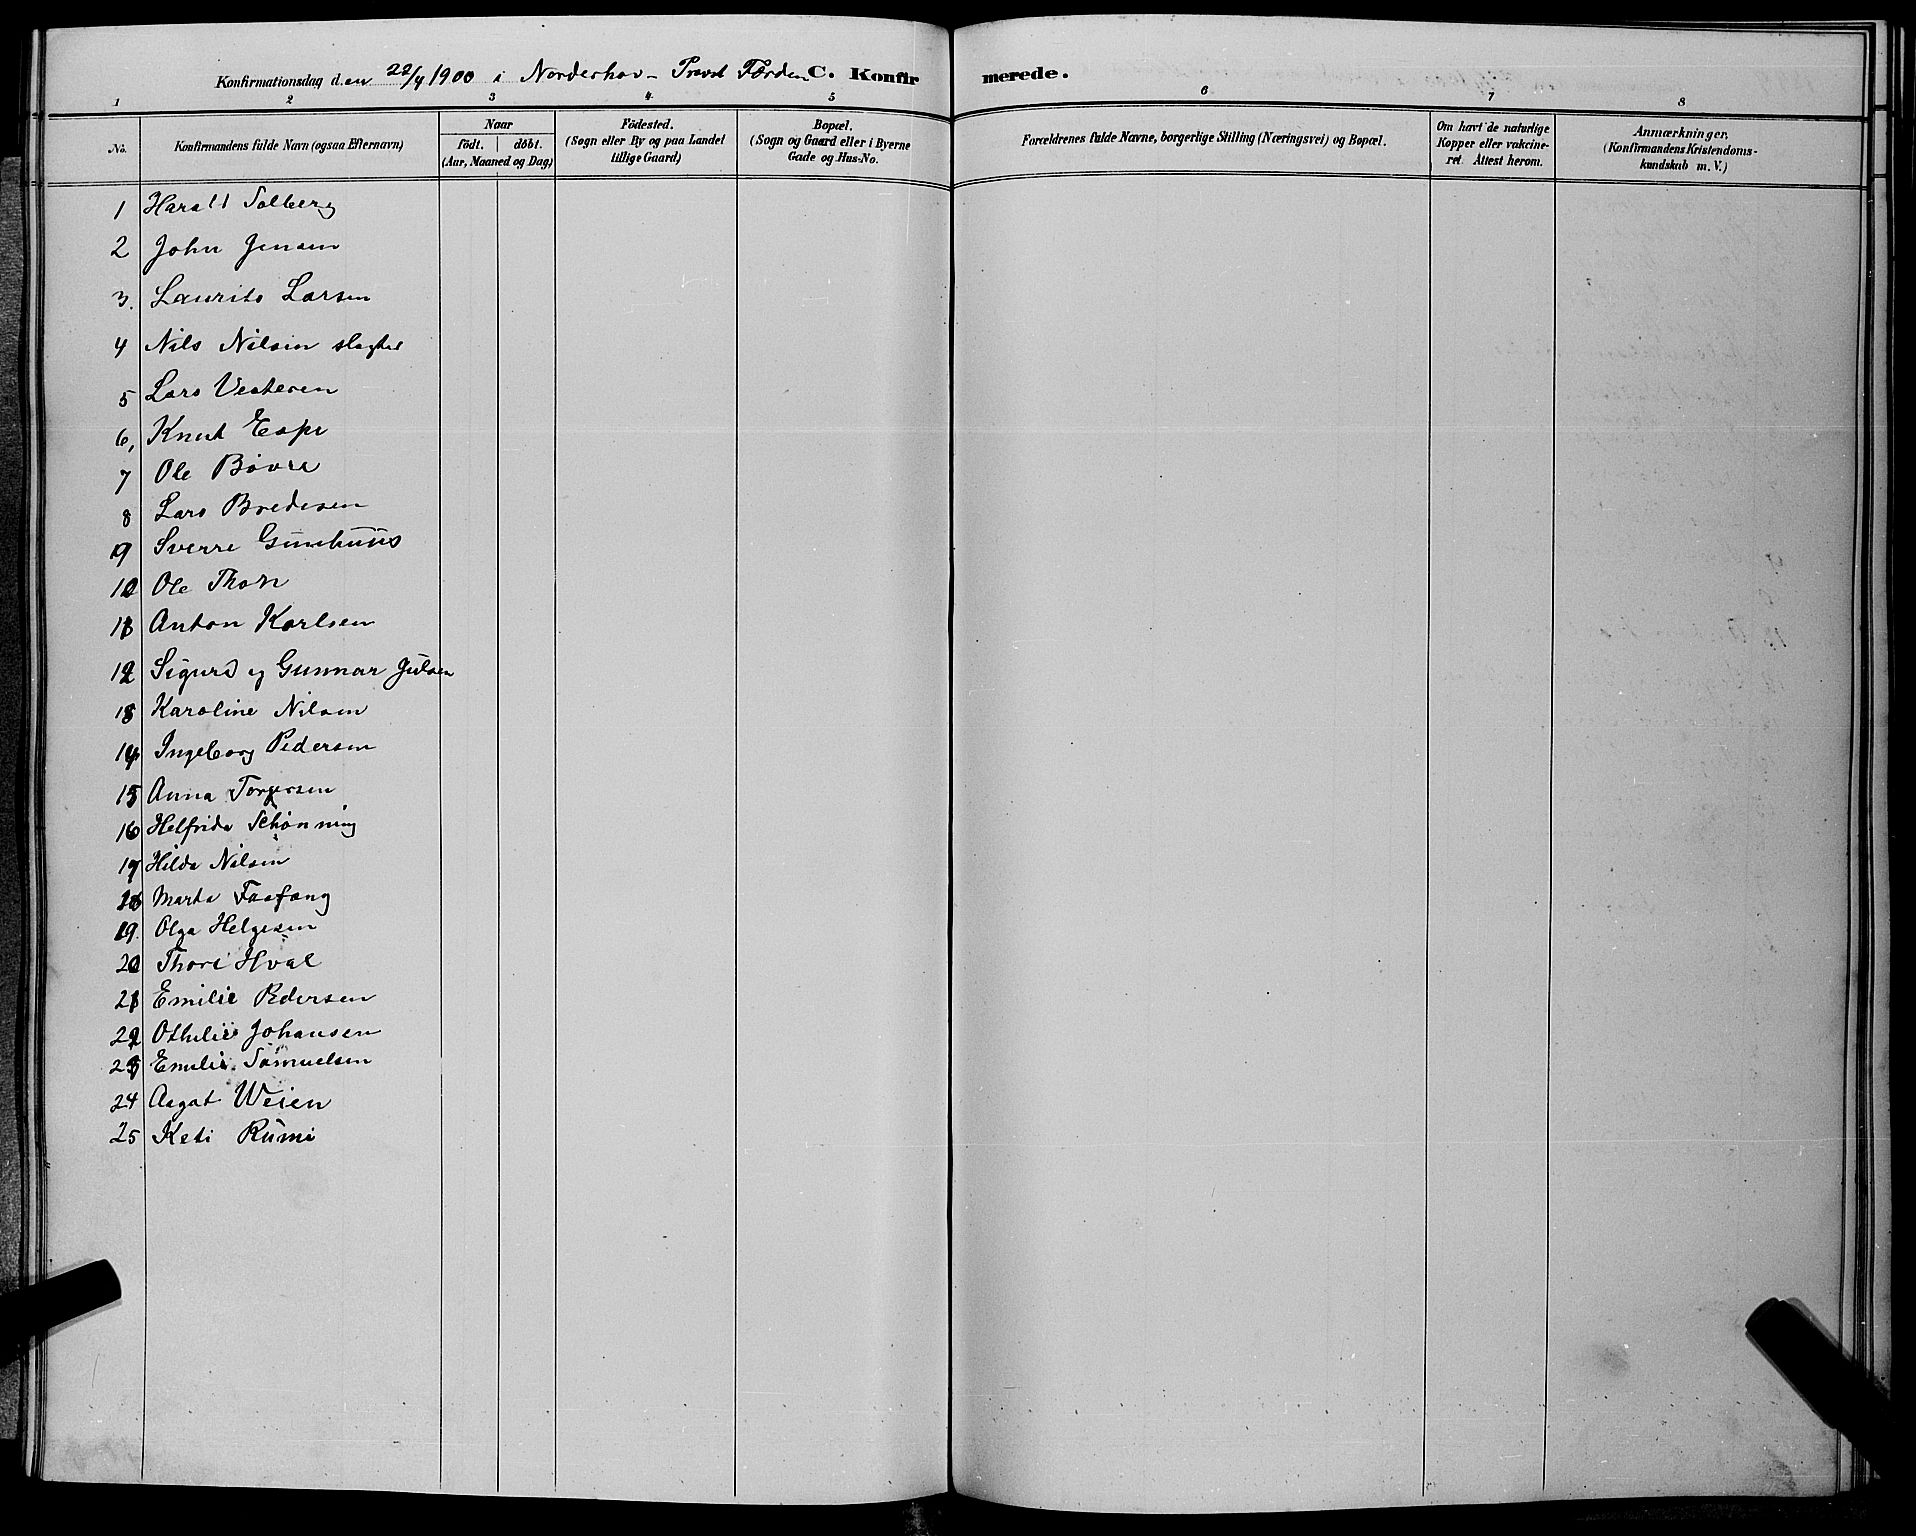 Konfirmationsdag den 22/4 1900 i Norderhov - Provst Førden C. Konfirmerede.
1 2 3 4 5 6 7 8
No.
Konfirmandens fulde Navn (ogsaa Efternavn)
Naar
födt. döbt.
(Aar, Maaned og Dag)
Födested.
(Sogn eller By og paa Landet
tillige Gaard)
Bopæl.
(Sogn og Gaard eller i Byerne
Gade og Hus-No.
Forældrenes fulde Navne, borgerlige Stilling (Næringsvei) og Bopæl.
Om havt de naturlige
Kopper eller vakcine-
ret. Attest herom.
Anmærkninger,
(Konfirmandens Kristendoms-
kundskab m. V.)
1 Harald Solberg
2 John Jensen
3. Laurits Larsen
4 Nils Nilsen slagter
5 Lars Vesteren
6, Knut Espe
7 Ole Bøvre
8 Lars Bredesen
9 Sverre
10 Ole Thon
11 Anton Karlsen
12 Sigurd og Gunnar Julsen
13 Karoline Nilsen
14 Ingeborg Pedersen
15 Anna Torgersen
16 Helfrida Schønning
17 Hilda Nilsen
18 Marta Fasfang
19. Olga Helgesen
20 Thora Hval
21 Emilie Pedersen
22 Othilie Johansen
23 Emilie Samuelsen
24 Aagot Weien
25 Keti